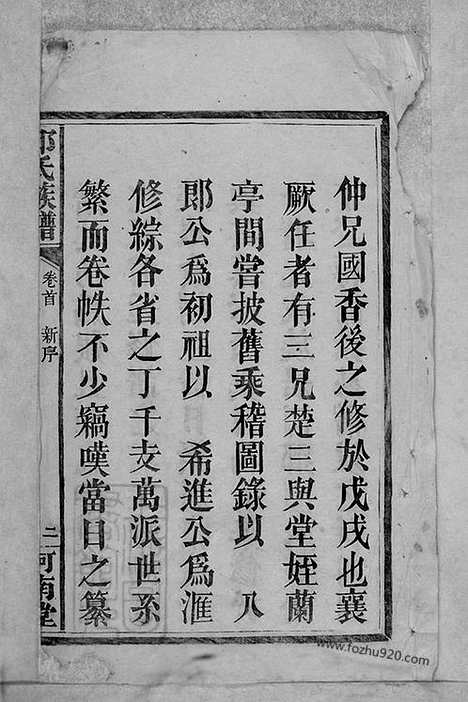 仲兄國香後之修於戊戌也襄
厥任者有三兄楚三與堂姪蘭
亭間嘗披舊乘稽圖錄以 八
郎公爲初祖以 希進公爲滙
修綜各省之丁千支萬派世系
繁而卷帙不少竊嘆當日之纂
氏族譜
卷首 新序
二
河南堂
www.fozhu920.com